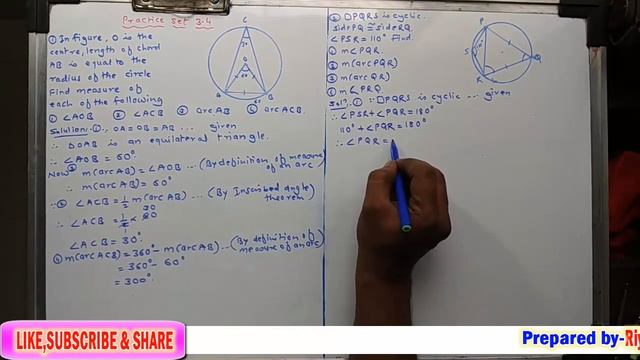 Practice Set 3.4
① In figure, O is the
centre, length of chord
AB is equal to the
radius of the circle
Find measure of
each of the following
① ∠AOB ② ∠ACB ③ arc AB ④ arc ACB.
Solution:- ① ∵ OA = OB = AB ... given
∴ △OAB is an equilateral triangle.
∴ ∠AOB = 60°
Now ③ m(arc AB) = ∠AOB ... (By definition of measure of an arc)
∴ m(arc AB) = 60°
② ∠ACB = 1/2 m(arc AB) ... (By Inscribed angle theorem)
∴ ∠ACB = 1/2 × 60
30
1
∠ACB = 30°
④ m(arc ACB) = 360° - m(arc AB) ... (By definition of measure of an arc)
= 360° - 60°
= 300°
C
O
A
B
② □PQRS is cyclic.
side PQ ≅ side RQ.
∠PSR = 110° Find.
① m∠PQR.
② m(arc PQR)
③ m(arc QR)
④ m∠PRQ
Sol?:- ① ∵ □PQRS is cyclic ... given
∴ ∠PSR + ∠PQR = 180°
110° + ∠PQR = 180°
∴ ∠PQR =
P
Q
S
R
110°
LIKE,SUBSCRIBE & SHARE
Prepared by-Riy